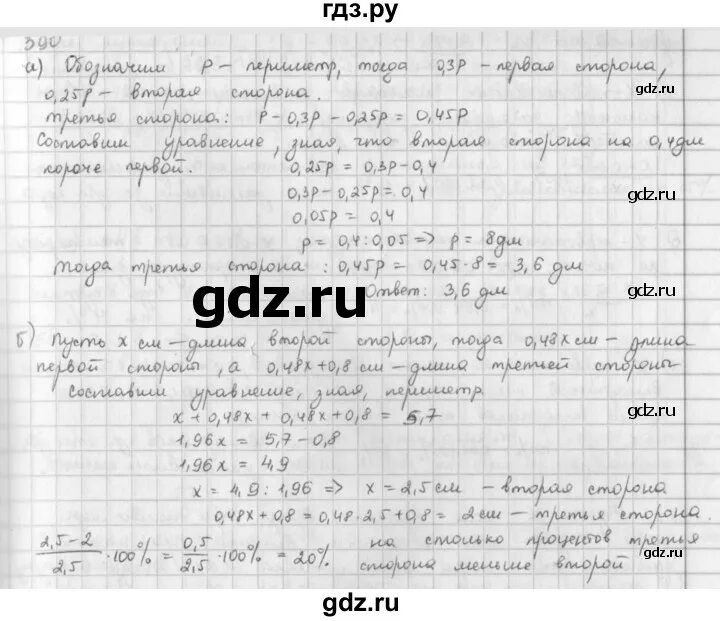 гдз.ру
390
а) Обозначим P – периметр, тогда 0,3P – первая сторона,
0,25P – вторая сторона.
третья сторона: P – 0,3P – 0,25P = 0,45P
Составим уравнение, зная, что вторая сторона на 0,4дм
короче первой. 0,25P = 0,3P – 0,4
0,3P – 0,25P = 0,4
0,05P = 0,4
P = 0,4 : 0,05 => P = 8дм
тогда третья сторона: 0,45P = 0,45 · 8 = 3,6 дм
Ответ: 3,6 дм
б) Пусть x см – длина второй стороны, тогда 0,48x см – длина
первой стороны, а 0,48x + 0,8 см – длина третьей стороны
Составим уравнение, зная, периметр
x + 0,48x + 0,48x + 0,8 = 5,7
1,96x = 5,7 – 0,8
1,96x = 4,9
x = 4,9 : 1,96 => x = 2,5 см – вторая сторона
0,48x + 0,8 = 0,48 · 2,5 + 0,8 = 2 см – третья сторона.
2,5 – 2 / 2,5 · 100% = 0,5 / 2,5 · 100% = 20% на столько процентов третья
сторона меньше второй
gdz.ru
gdz.ru
gdz.ru
gdz.ru
gdz.ru
gdz.ru
gdz.ru
gdz.ru